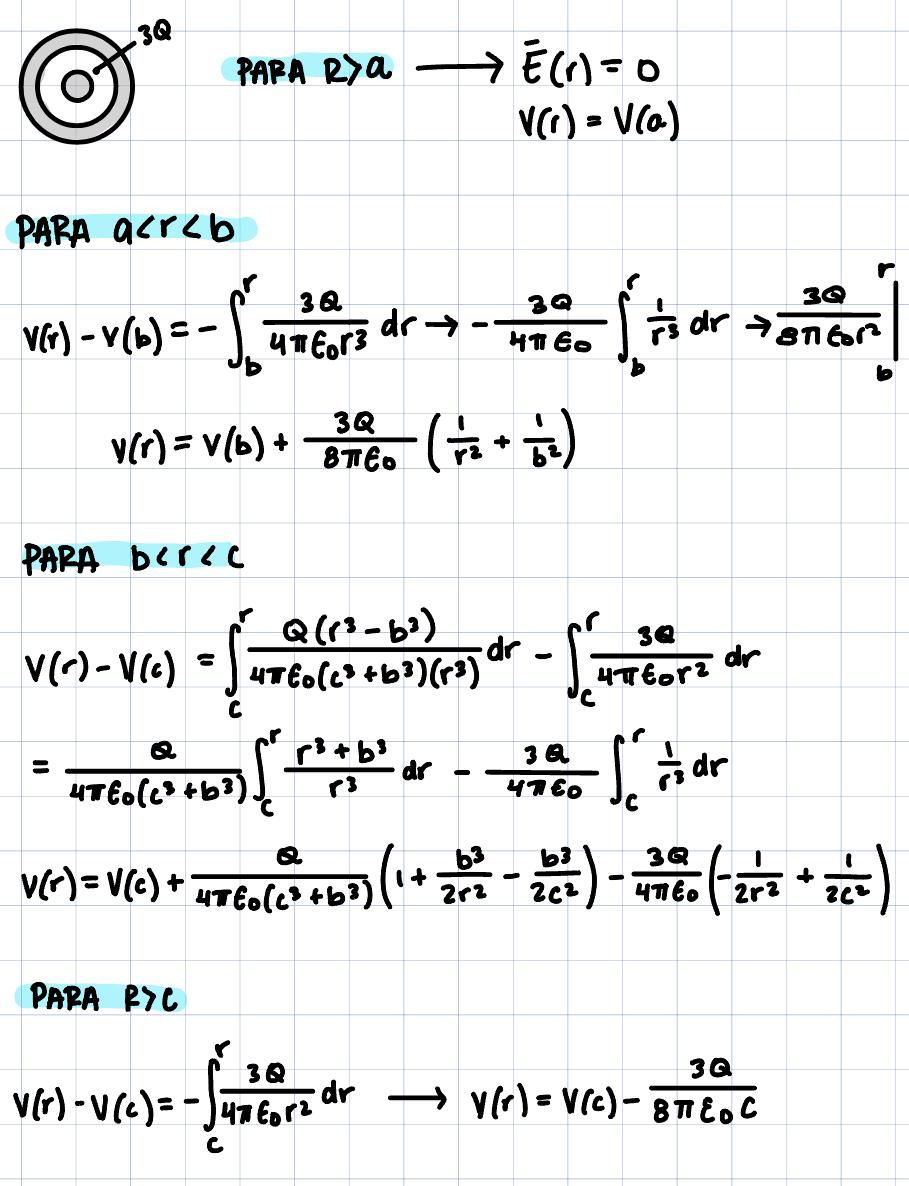 3Q
PARA R>a ⟶ Ē(r) = 0
V(r) = V(a)
PARA a<r<b
V(r) - V(b) = - ∫_b^r 3Q/(4πε₀r³) dr → - 3Q/(4πε₀) ∫_b^r 1/r³ dr → 3Q/(8πε₀r²) |_b^r
V(r) = V(b) + 3Q/(8πε₀) (1/r² + 1/b²)
PARA b<r<c
V(r) - V(c) = ∫_c^r Q(r³ - b³)/(4πε₀(c³ + b³)(r³)) dr - ∫_c^r 3Q/(4πε₀r²) dr
= Q/(4πε₀(c³ + b³)) ∫_c^r (r³ + b³)/r³ dr - 3Q/(4πε₀) ∫_c^r 1/r³ dr
V(r) = V(c) + Q/(4πε₀(c³ + b³)) (1 + b³/2r² - b³/2c²) - 3Q/(4πε₀) (-1/2r² + 1/2c²)
PARA R>c
V(r) - V(c) = - ∫_c^r 3Q/(4πε₀r²) dr ⟶ V(r) = V(c) - 3Q/(8πε₀c)